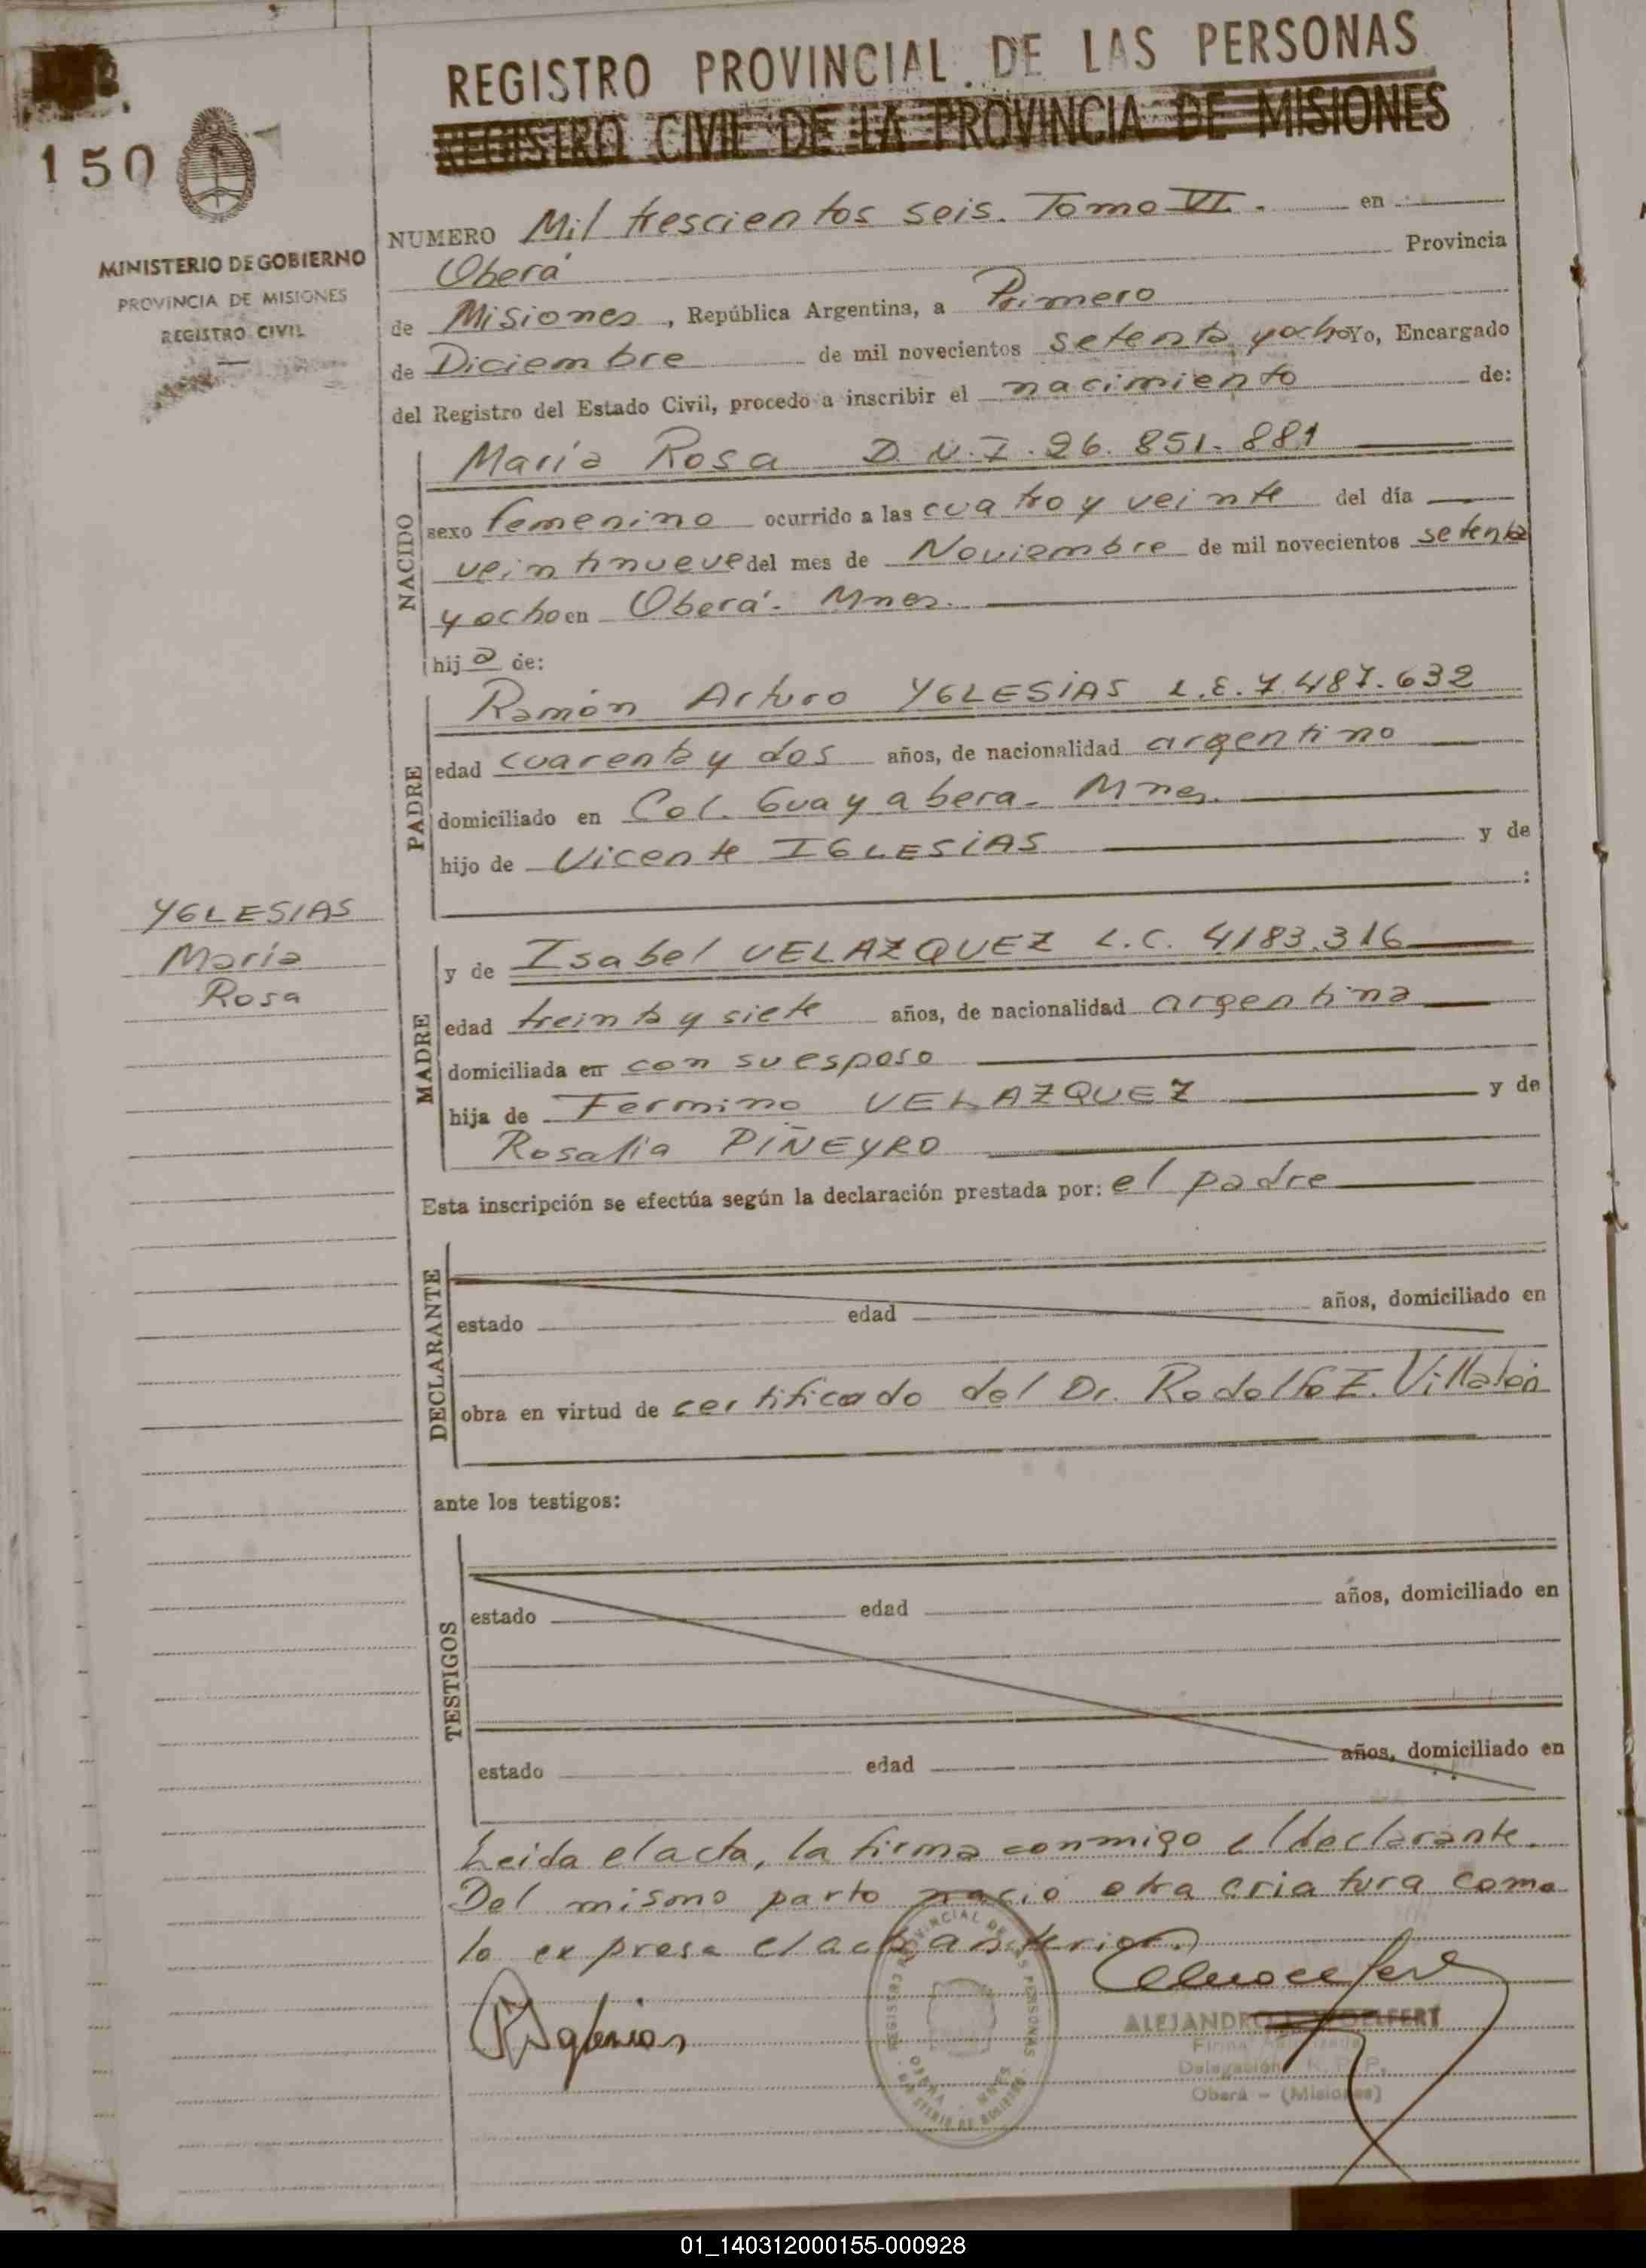 REGISTRO PROVINCIAL DE LAS PERSONAS
REGISTRO CIVIL DE LA PROVINCIA DE MISIONES
150
MINISTERIO DE GOBIERNO
PROVINCIA DE MISIONES
REGISTRO CIVIL
NUMERO Mil trescientos seis. Tomo VI. en
Oberá Provincia
de Misiones, República Argentina, a Primero
de Diciembre de mil novecientos setenta y ocho Yo, Encargado
del Registro del Estado Civil, procedo a inscribir el nacimiento de:
NACIDO
María Rosa D.N.I. 26.851.881
sexo femenino ocurrido a las cuatro y veinte del día
veintinueve del mes de Noviembre de mil novecientos setenta
y ocho en Oberá. Mnes.
hija de:
PADRE
Ramón Arturo YGLESIAS L.E. 7.487.632
edad cuarenta y dos años, de nacionalidad argentino
domiciliado en Col. Guayabera. Mnes.
hijo de Vicente IGLESIAS y de
:
YGLESIAS
María
Rosa
MADRE
y de Isabel VELAZQUEZ L.C. 4183.316
edad treinta y siete años, de nacionalidad argentina
domiciliada en con su esposo
hija de Fermino VELAZQUEZ y de
Rosalia PIÑEYRO
Esta inscripción se efectúa según la declaración prestada por: el padre
DECLARANTE
estado edad años, domiciliado en
obra en virtud de certificado del Dr. Rodolfo E. Villalón
ante los testigos:
TESTIGOS
estado edad años, domiciliado en
estado edad años, domiciliado en
Leida el acta, la firma conmigo el declarante.
Del mismo parto nació otra criatura como
lo expresa el acta anterior.
REGISTRO PROVINCIAL DE LAS PERSONAS
OBERA - MNES
MINISTERIO DE GOBIERNO
ALEJANDRO
Firma Autorizada
Delegación R. P. P.
Oberá - (Misiones)
01_140312000155-000928